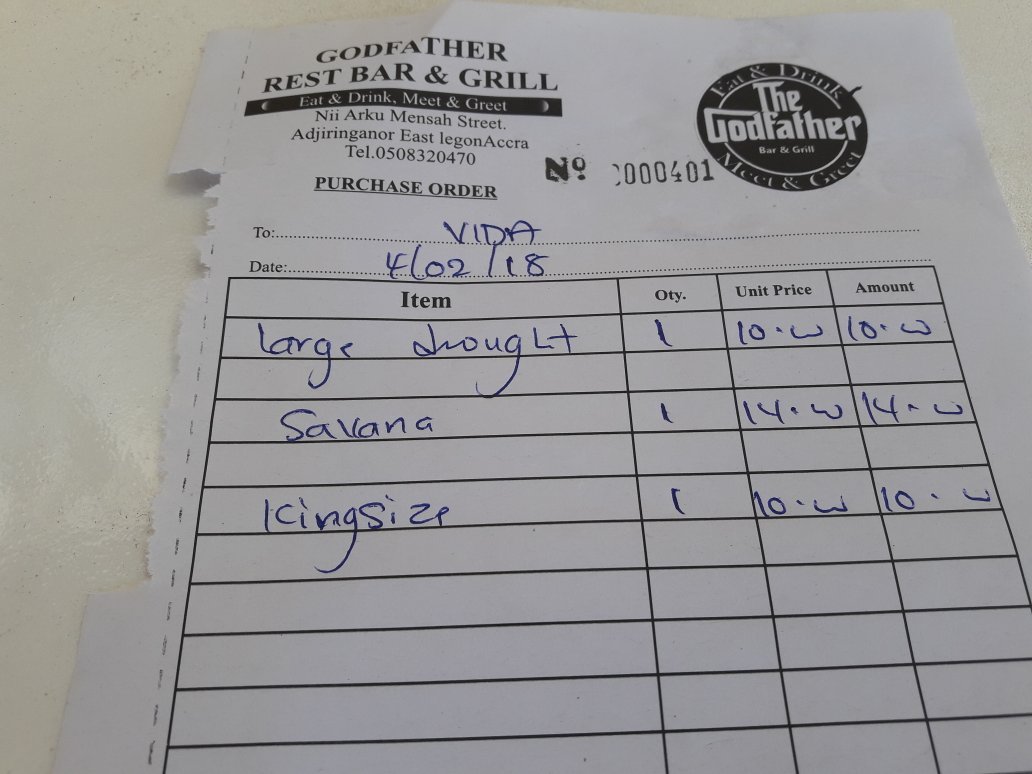 GODFATHER
REST BAR & GRILL
Eat & Drink, Meet & Greet
Nii Arku Mensah Street.
Adjiringanor East legonAccra
Tel.0508320470
PURCHASE ORDER
Nº 0000401
Eat & Drink
The
Godfather
Bar & Grill
Meet & Greet
To: VIDA
Date: 4/02/18
Item Qty. Unit Price Amount
large drought 1 10.00 10.00
Savana 1 14.00 14.00
Kingsize 1 10.00 10.00